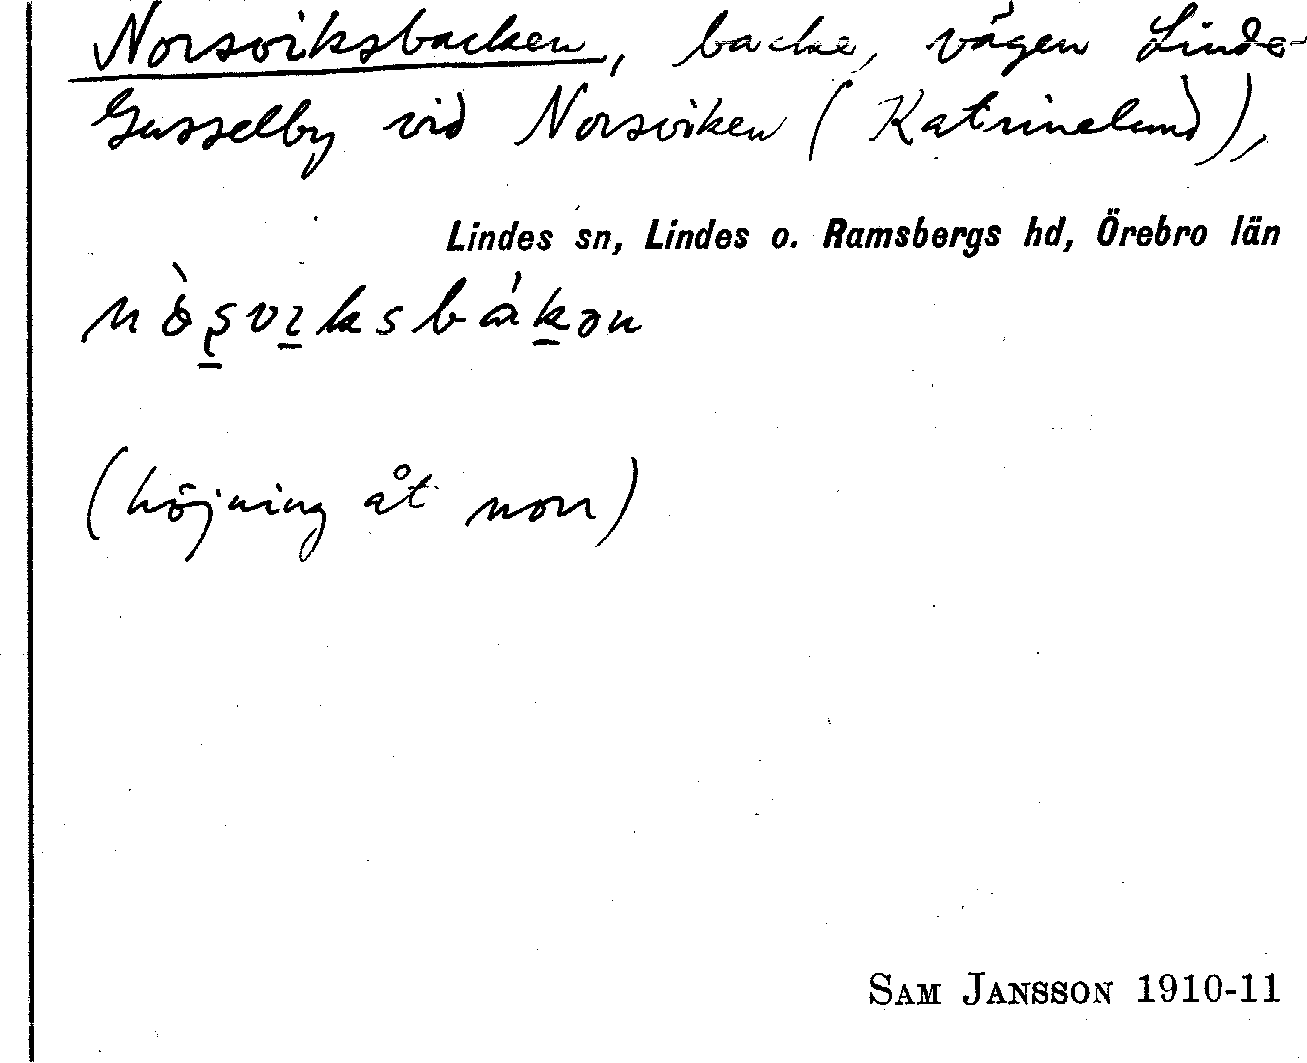 Norsviksbacken, backe, vägen Linde-
Gusselby vid Norsviken (Katrinelund),
Lindes sn, Lindes o. Ramsbergs hd, Örebro län
(höjning åt norr)
SAM JANSSON 1910-11